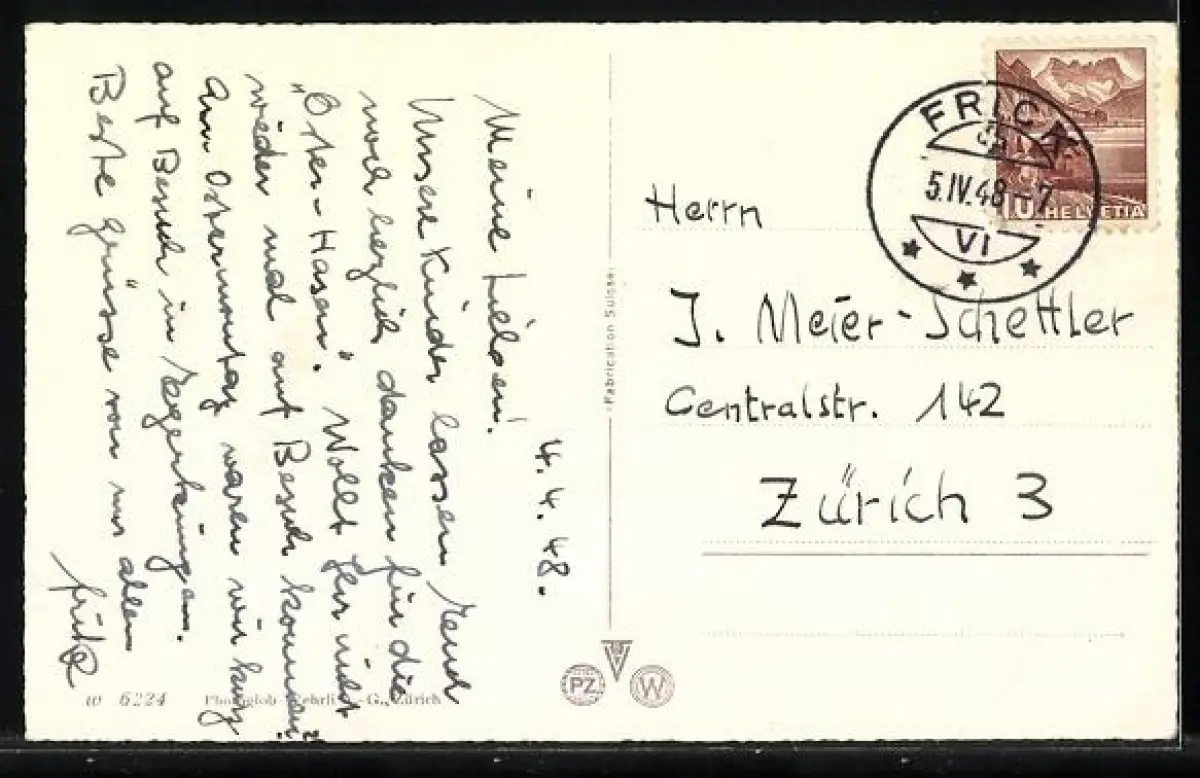 4. 4. 48.
Meine Lieben!
Unsere Kinder lassen Euch
noch herzlich danken für die
„Oster-Hasen". Wollt Ihr nicht
wieder mal auf Besuch kommen?
Am Ostermontag waren wir kurz
auf Besuch in Egerkingen.
Beste Grüsse von uns allen
Fritz
w 6224 Photoglob-Wehrli A.-G., Zürich
Fabrication Suisse
PZ
W
FRICK
5.IV.48-7
VI
10 HELVETIA
Herrn
J. Meier-Schettler
Centralstr. 142
Zürich 3